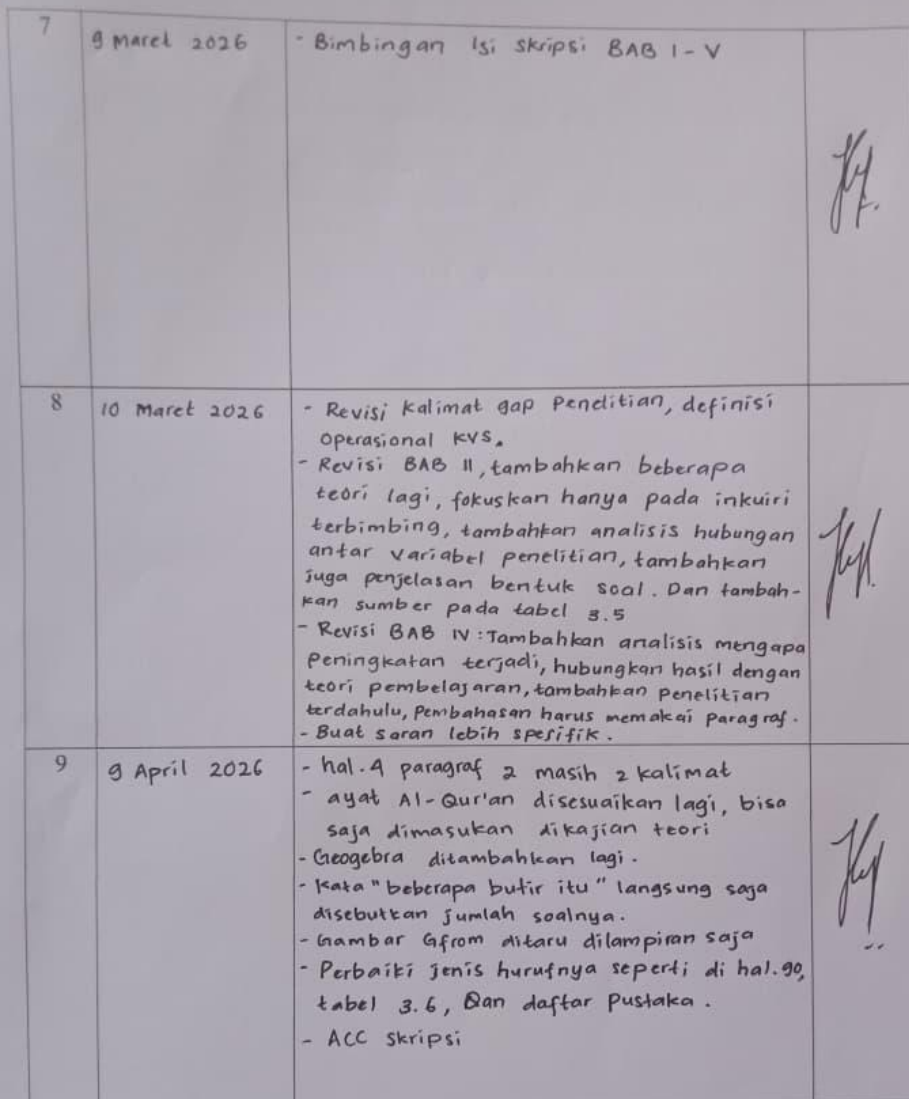 7
9 Maret 2026
- Bimbingan Isi skripsi BAB I - V
8
10 Maret 2026
- Revisi kalimat gap Penelitian, definisi
operasional KVS.
- Revisi BAB II, tambahkan beberapa
teori lagi, fokuskan hanya pada inkuiri
terbimbing, tambahkan analisis hubungan
antar variabel penelitian, tambahkan
juga penjelasan bentuk soal. Dan tambah-
kan sumber pada tabel 3.5
- Revisi BAB IV : Tambahkan analisis mengapa
peningkatan terjadi, hubungkan hasil dengan
teori pembelajaran, tambahkan penelitian
terdahulu, Pembahasan harus memakai paragraf.
- Buat saran lebih spesifik.
9
9 April 2026
- hal. 4 paragraf 2 masih 2 kalimat
- ayat Al-Qur'an disesuaikan lagi, bisa
saja dimasukan dikajian teori
- Geogebra ditambahkan lagi.
- Kata "beberapa butir itu" langsung saja
disebutkan jumlah soalnya.
- Gambar Gfrom ditaru dilampiran saja
- Perbaiki jenis hurufnya seperti di hal. 90,
tabel 3.6, Dan daftar Pustaka.
- ACC Skripsi